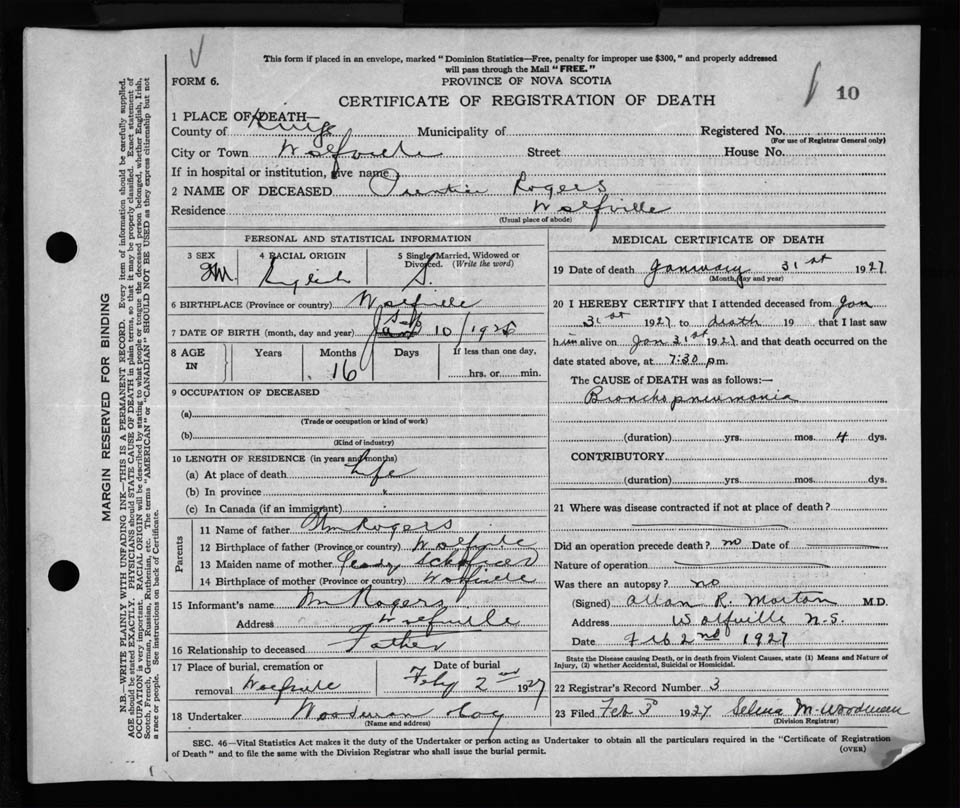 This form if placed in an envelope, marked "Dominion Statistics—Free, penalty for improper use $300," and properly addressed
will pass through the Mail "FREE."
FORM 6.
PROVINCE OF NOVA SCOTIA
10
CERTIFICATE OF REGISTRATION OF DEATH
1 PLACE OF DEATH—
County of Kings Municipality of Registered No.
(For use of Registrar General only)
City or Town Wolfville Street House No.
If in hospital or institution, give name
2 NAME OF DECEASED Rogers
Residence Wolfville
(Usual place of abode)
PERSONAL AND STATISTICAL INFORMATION
3 SEX 4 RACIAL ORIGIN 5 Single, Married, Widowed or Divorced. (Write the word)
M. English S.
6 BIRTHPLACE (Province or country) Wolfville
Sep
7 DATE OF BIRTH (month, day and year) 10/1925
8 AGE IN Years Months Days If less than one day,
16 hrs. or min.
9 OCCUPATION OF DECEASED
(a)
(Trade or occupation or kind of work)
(b)
(Kind of industry)
10 LENGTH OF RESIDENCE (in years and months)
(a) At place of death Life
(b) In province
(c) In Canada (if an immigrant)
Parents
11 Name of father Wm Rogers
12 Birthplace of father (Province or country) Wolfville
13 Maiden name of mother
14 Birthplace of mother (Province or country) Wolfville
15 Informant's name Wm Rogers
Address Wolfville
16 Relationship to deceased Father
17 Place of burial, cremation or Date of burial
removal Wolfville Feby 2nd 1927
18 Undertaker Woodman & Coy
(Name and address)
MEDICAL CERTIFICATE OF DEATH
19 Date of death January 31st 1927
(Month, day and year)
20 I HEREBY CERTIFY that I attended deceased from Jan
31st 1927 to death 19 that I last saw
him alive on Jan 31st 1927 and that death occurred on the
date stated above, at 7:30 pm.
The CAUSE of DEATH was as follows:—
Bronchopneumonia
(duration) yrs. mos. 4 dys.
CONTRIBUTORY
(duration) yrs. mos. dys.
21 Where was disease contracted if not at place of death?
Did an operation precede death? no Date of
Nature of operation
Was there an autopsy? no
(Signed) Allan R. Morton M.D.
Address Wolfville N.S.
Date Feb 2nd 1927
State the Disease causing Death, or in death from Violent Causes, state (1) Means and Nature of
Injury, (2) whether Accidental, Suicidal or Homicidal.
22 Registrar's Record Number 3
23 Filed Feb 3º 1927 Selena M. Woodman
(Division Registrar)
SEC. 46—Vital Statistics Act makes it the duty of the Undertaker or person acting as Undertaker to obtain all the particulars required in the "Certificate of Registration
of Death" and to file the same with the Division Registrar who shall issue the burial permit.
(OVER)
MARGIN RESERVED FOR BINDING
N.B.—WRITE PLAINLY WITH UNFADING INK—THIS IS A PERMANENT RECORD. Every item of information should be carefully supplied.
AGE should be stated EXACTLY. PHYSICIANS should STATE CAUSE OF DEATH in plain terms, so that it may be properly classified. Exact statement of
OCCUPATION is very important. RACIAL ORIGIN will be described by stating to what people or tongue the deceased person belonged, whether English, Irish,
Scotch, French, German, Russian, Ruthenian, etc. The terms "AMERICAN" or "CANADIAN" SHOULD NOT BE USED as they express citizenship but not
a race or people. See instructions on back of Certificate.